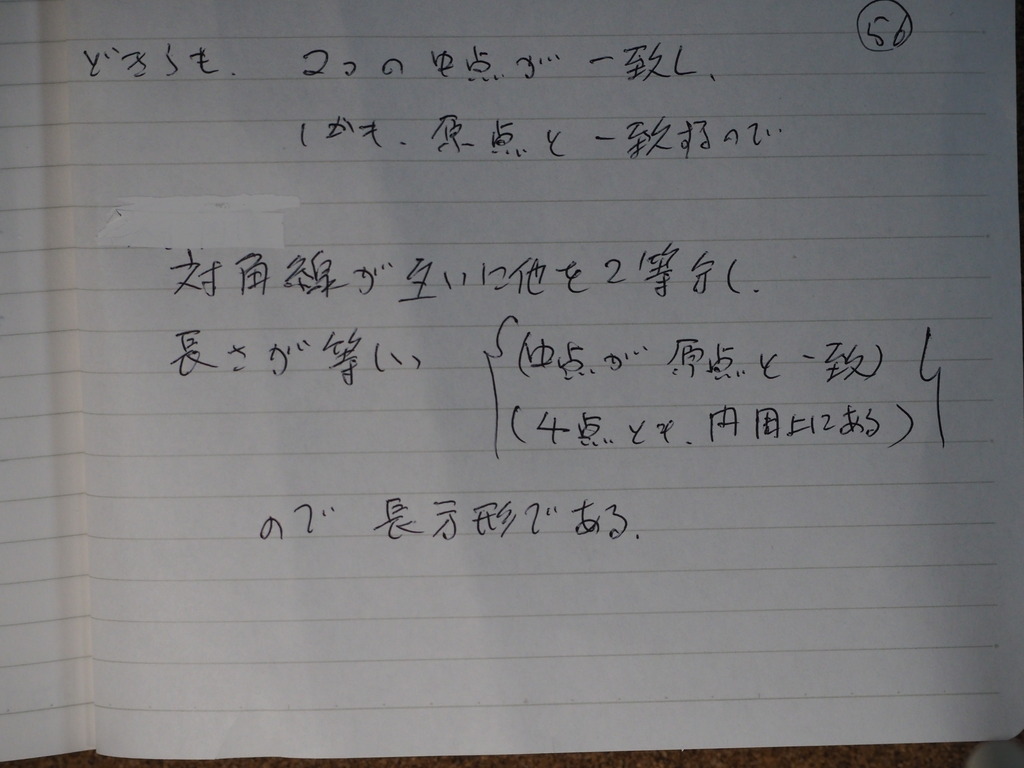 56
どちらも、2つの中点が一致し、
しかも、原点と一致するので
対角線が互いに他を2等分し、
長さが等しい {(中点が原点と一致)
(4点とも、円周上にある)}
ので長方形である。